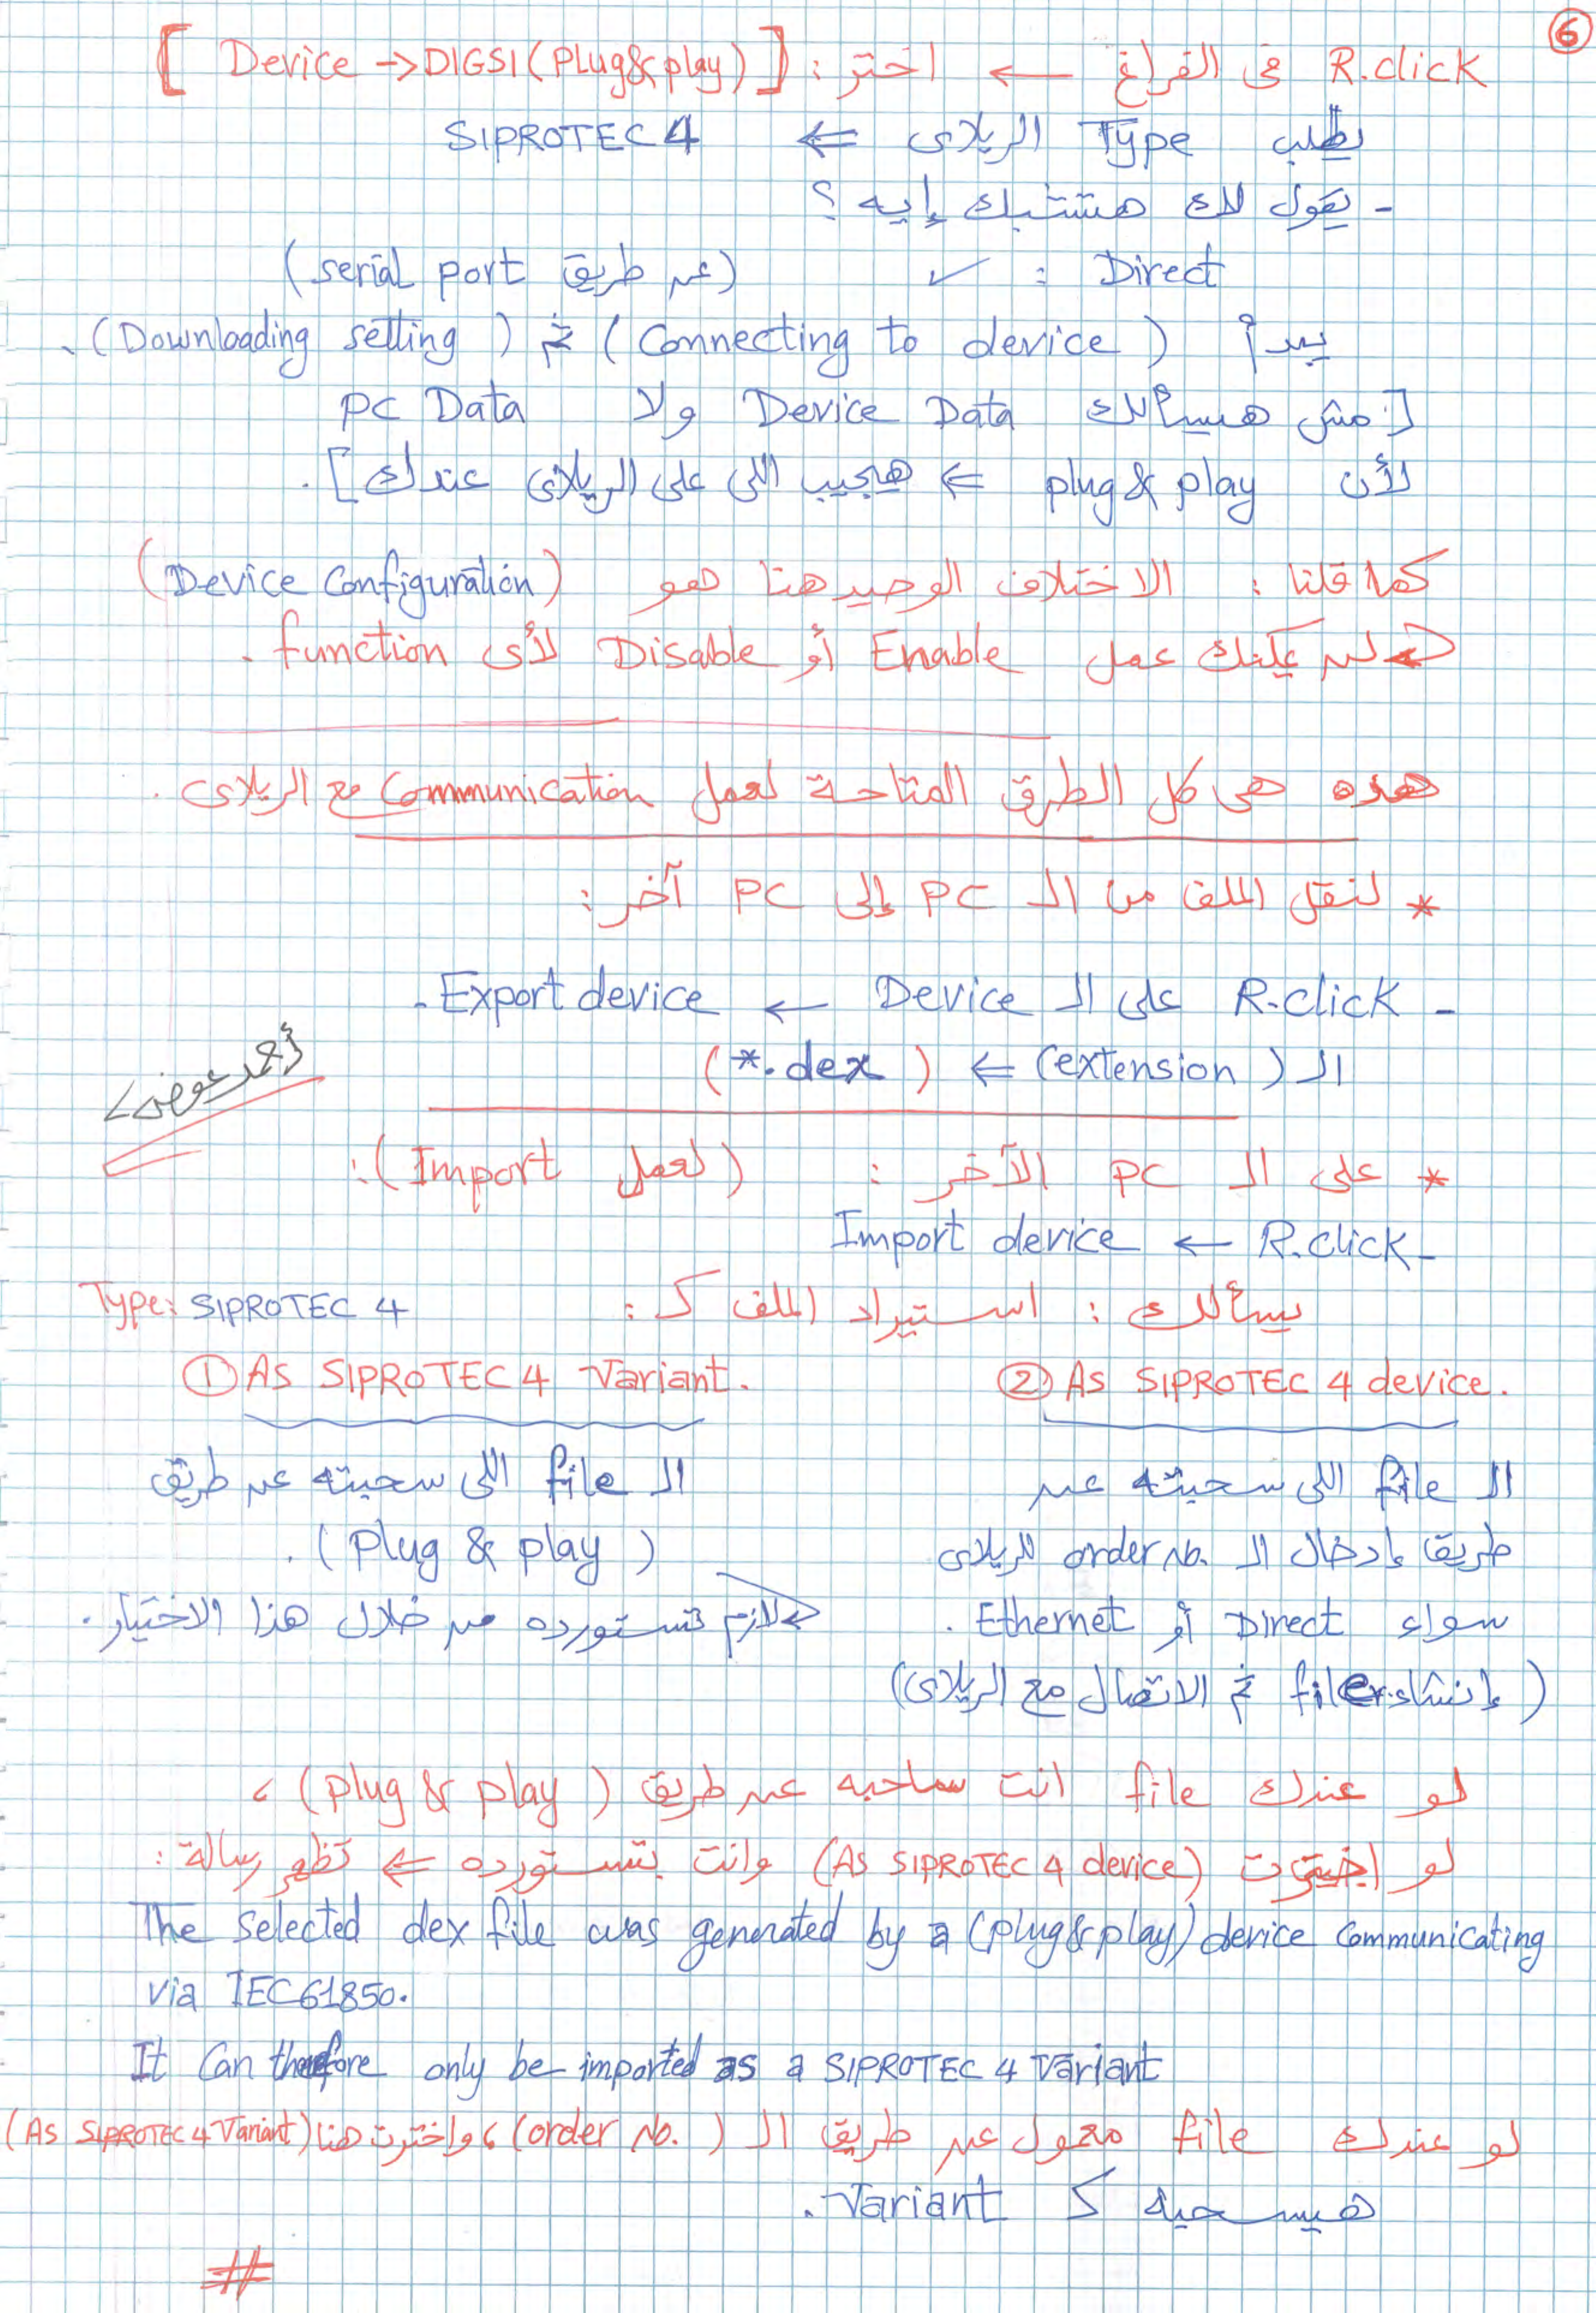 6
R.click فى الفراغ ← اختر : [ Device → DIGSI (Plug & play) ]
يطلب Type الريلاى ⇐ SIPROTEC 4
- يقول لك هتشبك إيه ؟
Direct : ✓ (عن طريق serial port)
يبدأ (Connecting to device) ثم (Downloading setting).
[مش هيسألك Device Data ولا PC Data
لأن plug & play ⇐ هيجيب اللى على الريلاى عندك].
كما قلنا : الاختلاف الوحيد هنا هو (Device Configuration)
لن يمكنك عمل Enable أو Disable لأى function.
هذه هى كل الطرق المتاحة لعمل Communication مع الريلاى.
* لنقل الملف من الـ PC إلى PC آخر :
- R.click على الـ Device ← Export device.
الـ (extension) ⇐ (*.dex)
أحمد عوض
* على الـ PC الآخر : (لعمل Import):
- R.click ← Import device
يسألك : استيراد الملف كـ : Type: SIPROTEC 4
① As SIPROTEC 4 Variant. ② As SIPROTEC 4 device.
الـ file اللى سحبته عن طريق
(Plug & play).
لازم تستورده من خلال هذا الاختيار.
الـ file اللى سحبته عن
طريق إدخال الـ order No. للريلاى
سواء Direct أو Ethernet.
(إنشاء file ثم الاتصال مع الريلاى)
لو عندك file انت ساحبه عن طريق (plug & play) ،
لو اخترت (As SIPROTEC 4 device) وانت بتستورده ⇐ تظهر رسالة :
The Selected dex file was generated by a (plug & play) device Communicating
via IEC61850.
It Can therefore only be imported as a SIPROTEC 4 Variant
لو عندك file معمول عن طريق الـ (order No.) ، واخترت هنا (As SIPROTEC 4 Variant)
هيسحبه كـ Variant.
#